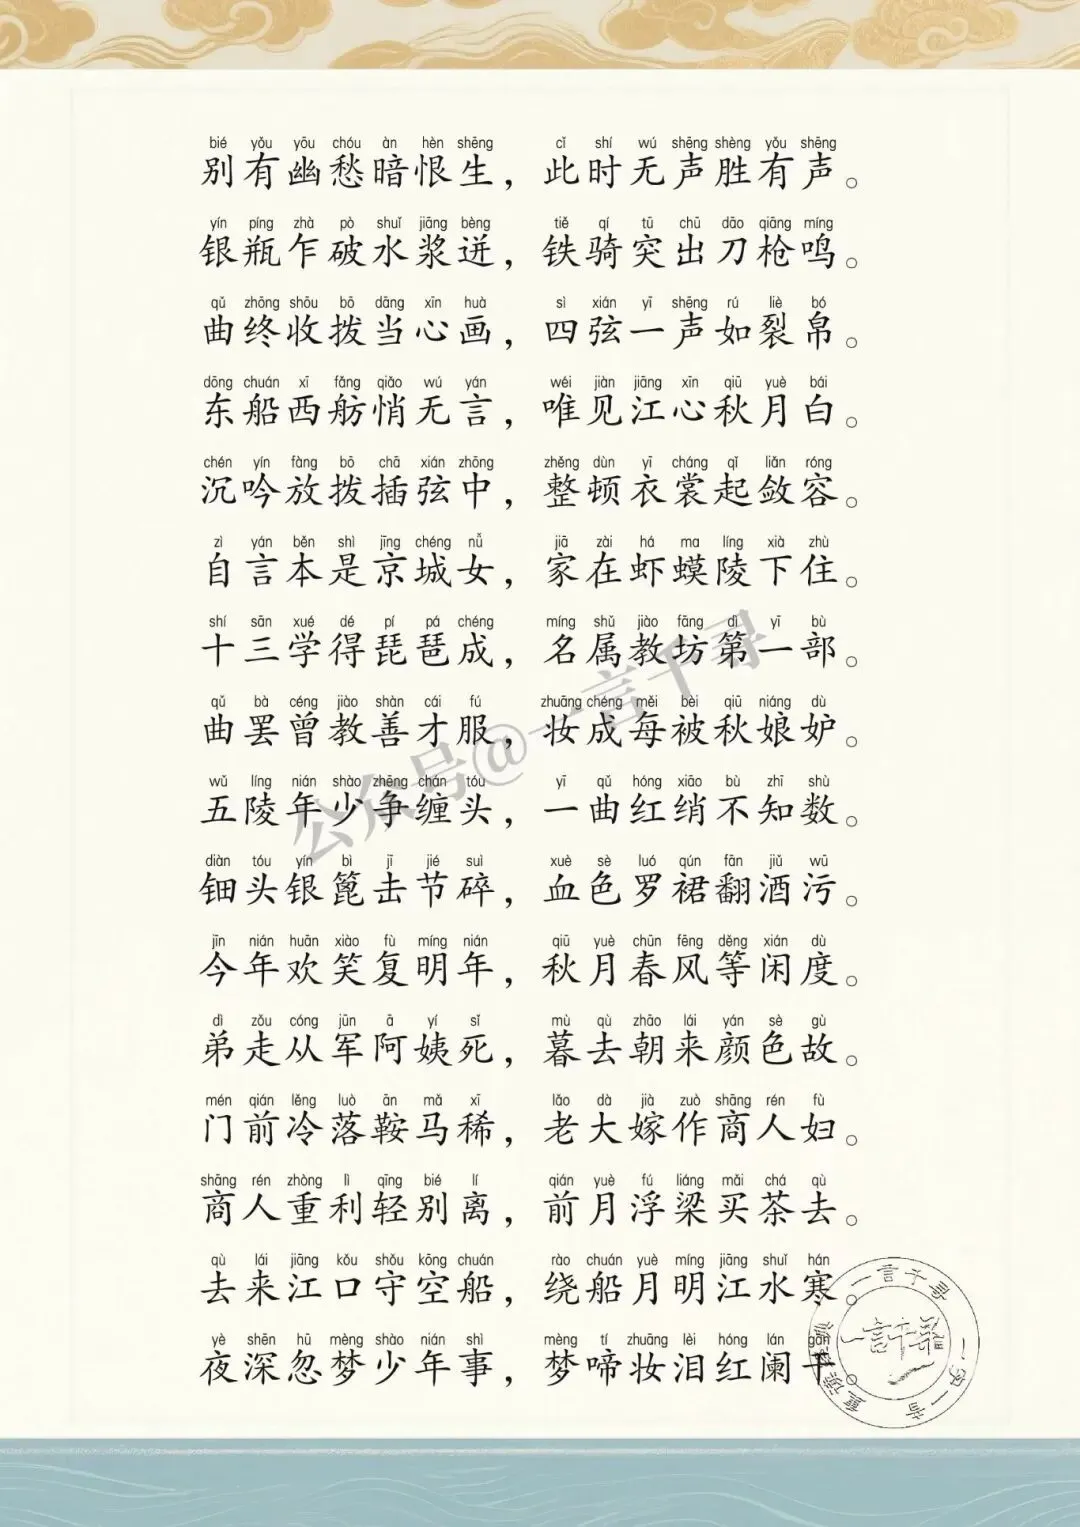 bié yǒu yōu chóu àn hèn shēng cǐ shí wú shēng shèng yǒu shēng
别有幽愁暗恨生，此时无声胜有声。
yín píng zhà pò shuǐ jiāng bèng tiě qí tū chū dāo qiāng míng
银瓶乍破水浆迸，铁骑突出刀枪鸣。
qǔ zhōng shōu bō dāng xīn huà sì xián yī shēng rú liè bó
曲终收拨当心画，四弦一声如裂帛。
dōng chuán xī fǎng qiǎo wú yán wéi jiàn jiāng xīn qiū yuè bái
东船西舫悄无言，唯见江心秋月白。
chén yín fàng bō chā xián zhōng zhěng dùn yī cháng qǐ liǎn róng
沉吟放拨插弦中，整顿衣裳起敛容。
zì yán běn shì jīng chéng nǚ jiā zài há ma líng xià zhù
自言本是京城女，家在虾蟆陵下住。
shí sān xué dé pí pá chéng míng shǔ jiào fāng dì yī bù
十三学得琵琶成，名属教坊第一部。
qǔ bà céng jiào shàn cái fú zhuāng chéng měi bèi qiū niáng dù
曲罢曾教善才服，妆成每被秋娘妒。
wǔ líng nián shào zhēng chán tóu yī qǔ hóng xiāo bù zhī shù
五陵年少争缠头，一曲红绡不知数。
diàn tóu yín bì jī jié suì xuè sè luó qún fān jiǔ wū
钿头银篦击节碎，血色罗裙翻酒污。
jīn nián huān xiào fù míng nián qiū yuè chūn fēng děng xián dù
今年欢笑复明年，秋月春风等闲度。
dì zǒu cóng jūn ā yí sǐ mù qù zhāo lái yán sè gù
弟走从军阿姨死，暮去朝来颜色故。
mén qián lěng luò ān mǎ xī lǎo dà jià zuò shāng rén fù
门前冷落鞍马稀，老大嫁作商人妇。
shāng rén zhòng lì qīng bié lí qián yuè fú liáng mǎi chá qù
商人重利轻别离，前月浮梁买茶去。
qù lái jiāng kǒu shǒu kōng chuán rào chuán yuè míng jiāng shuǐ hán
去来江口守空船，绕船月明江水寒。
yè shēn hū mèng shào nián shì mèng tí zhuāng lèi hóng lán gān
夜深忽梦少年事，梦啼妆泪红阑干。
公众号@一言千寻
一言千寻
一字一音
一言千寻